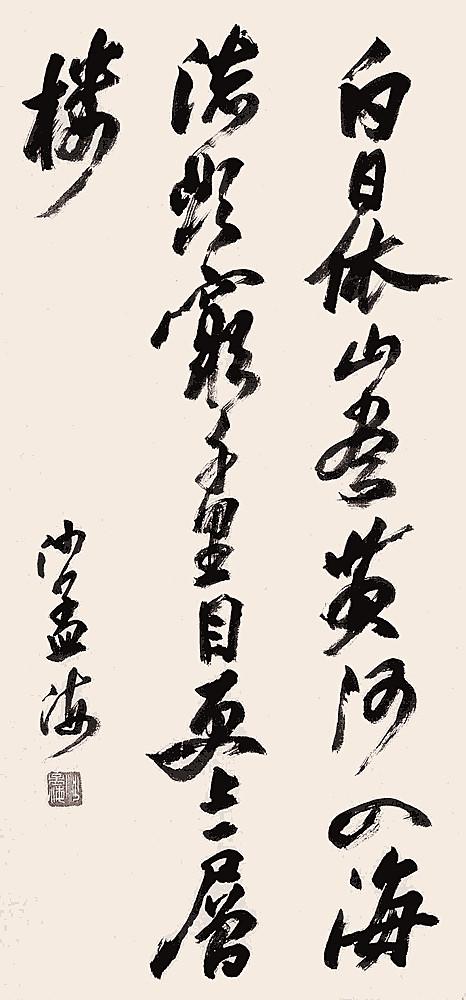 白日依山尽黄河入海
流欲窮千里目更上一層
楼
沙孟海